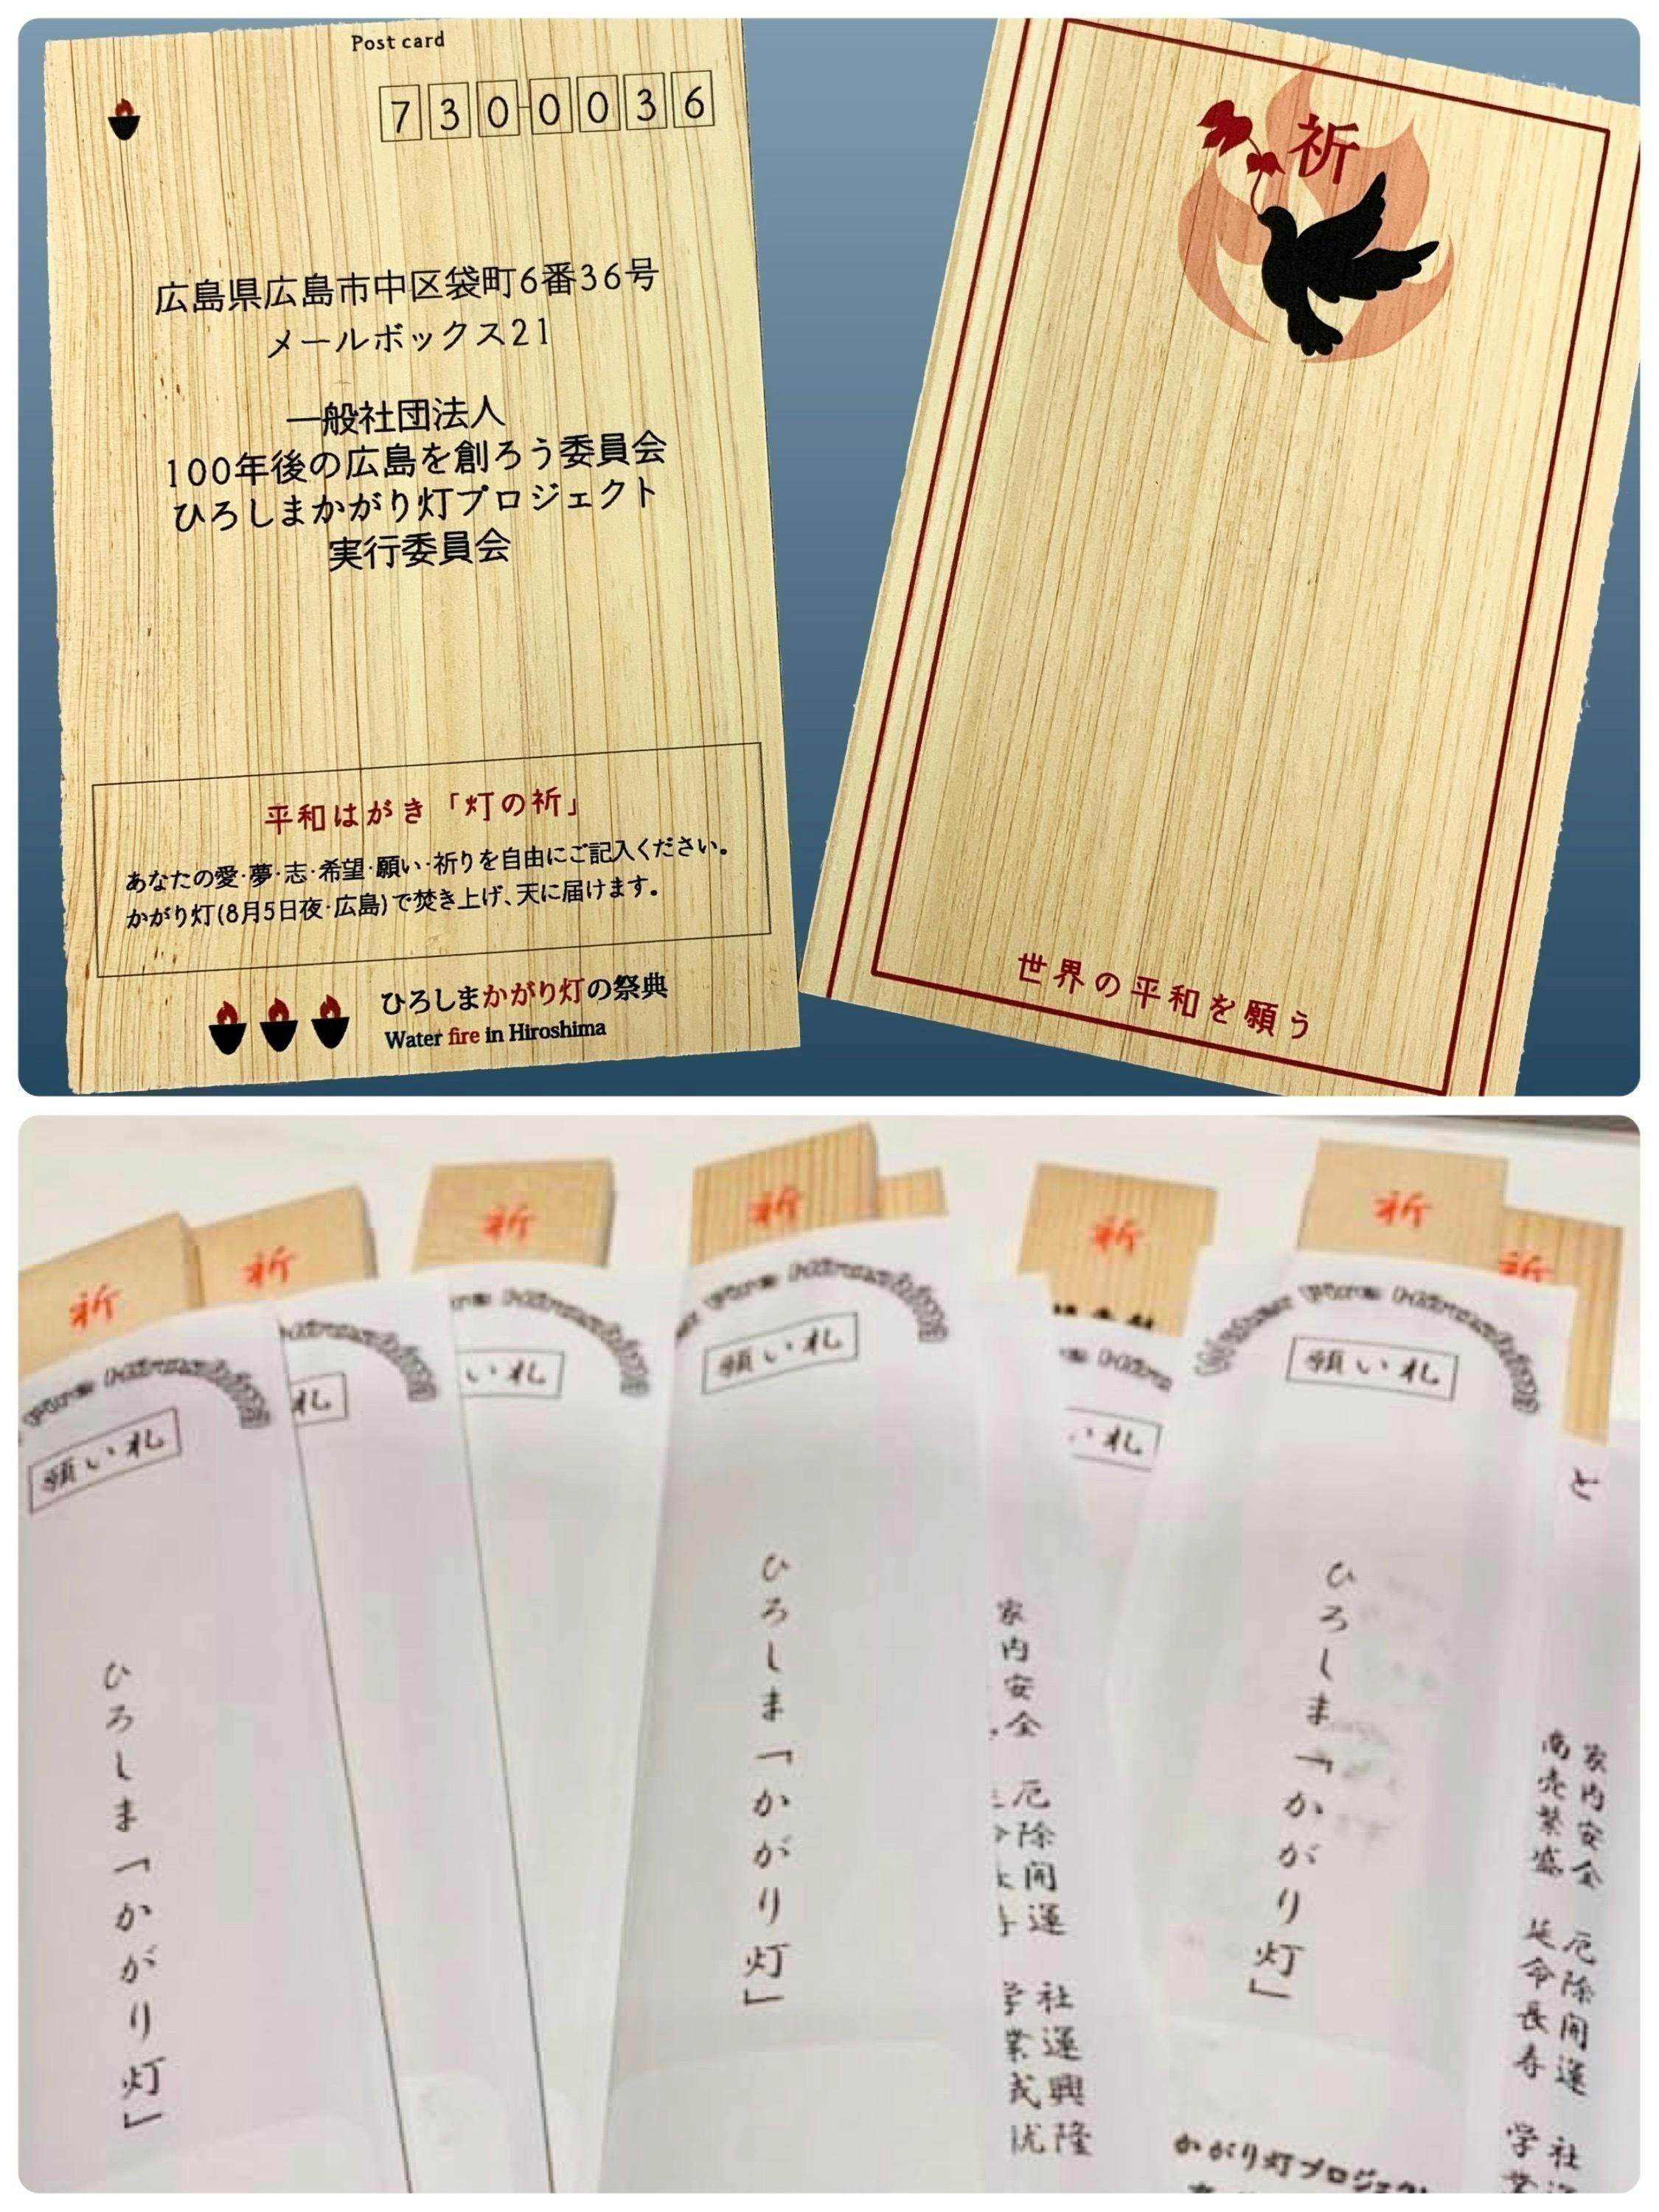 Post card
730-0036
広島県広島市中区袋町6番36号
メールボックス21
一般社団法人
100年後の広島を創ろう委員会
ひろしまかがり灯プロジェクト
実行委員会
平和はがき「灯の祈」
あなたの愛・夢・志・希望・願い・祈りを自由にご記入ください。
かがり灯(8月5日夜・広島)で焚き上げ、天に届けます。
ひろしまかがり灯の祭典
Water fire in Hiroshima
祈
世界の平和を願う
祈
祈
祈
祈
祈
祈
祈
Fire Hiroshima
願い札
ひろしま「かがり灯」
Hiroshima
札
Hiroshima
い札
Fire Hiroshima
願い札
ひろしま「かがり灯」
い札
家内安全 厄除開運 社運興隆
Water Fire Hiroshima
願い札
ひろしま「かがり灯」
かがり灯プロジェク
と
家内安全 厄除開運 社
商売繁盛 延命長寿 学